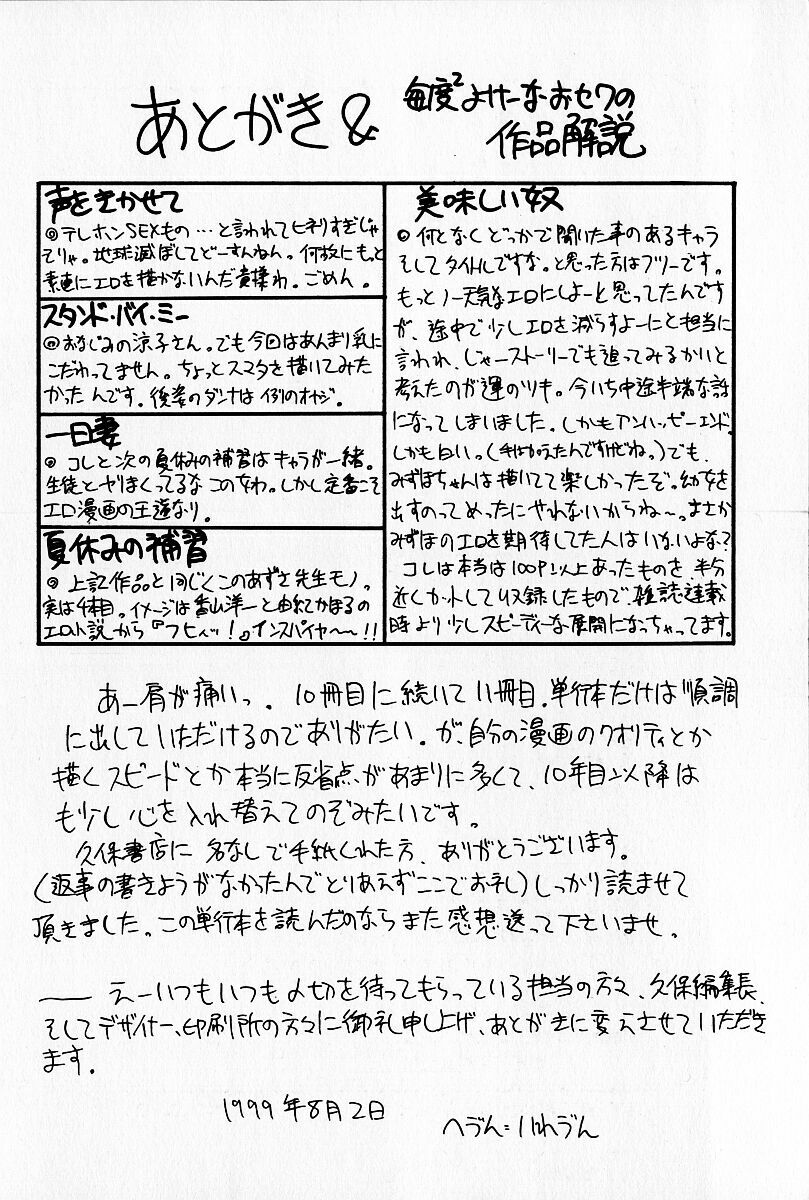 あとがき&
毎度²よけーなおセワの
作品解説
声をきかせて
◎テレホンSEXもの…と言われてヒネリすぎじゃ
そりゃ。地球滅ぼしてどーすんねん。何故にもっと
素直にエロを描かないんだ貴様わ。ごめん。
スタンド・バイ・ミー
◎おなじみの涼子さん。でも今回はあんまり乳に
こだわってません。ちょっとスマタを描いてみた
かったんです。後姿のダンナは例のオヤジ。
一日妻
◎コレと次の夏休みの補習はキャラが一緒。
生徒とやりまくってるなこの女わ。しかし定番こそ
エロ漫画の王道なり。
夏休みの補習
◎上記作品と同じくこのあずさ先生モノ。
実は4本目。イメージは香山洋一と由紀かほるの
エロ小説から『フヒィッ!』インスパイヤ〜〜!!
美味しい奴
◎何となくどっかで聞いた事のあるキャラ
そしてタイトルですな。と思った方はフツーです。
もっとノー天気なエロにしよーと思ってたんです
が、途中で少しエロを減らすよーにと担当に
言われ、じゃーストーリーでも追ってみるかいと
考えたのが運のツキ。今いち中途半端な話
になってしまいました。しかもアンハッピーエンド。
しかも白い。(手は加えたんですけどね。)でも、
みずほちゃんは描いてて楽しかったぞ。幼女を
出すのってめったにやれないからね〜。まさか
みずほのエロを期待してた人はいないよな?
コレは本当は100P以上あったものを半分
近くカットして収録したもので、雑誌連載
時より少しスピーディーな展開になっちゃってます。
あー肩が痛いっ。10冊目に続いて11冊目。単行本だけは順調
に出していただけるのでありがたい。が、自分の漫画のクオリティとか
描くスピードとか本当に反省点があまりに多くて、10年目以降は
も少し心を入れ替えてのぞみたいです。
久保書店に名なしで手紙くれた方、ありがとうございます。
(返事の書きようがなかったんでとりあえずここでお礼)しっかり読ませて
頂きました。この単行本を読んだのならまた感想送って下さいませ。
―― えーいつもいつも〆切を待ってもらっている担当の方々、久保編集長、
そしてデザイナー、印刷所の方々に御礼申し上げ、あとがきに変えさせていただき
ます。
1999年8月2日
へづん=はれづん